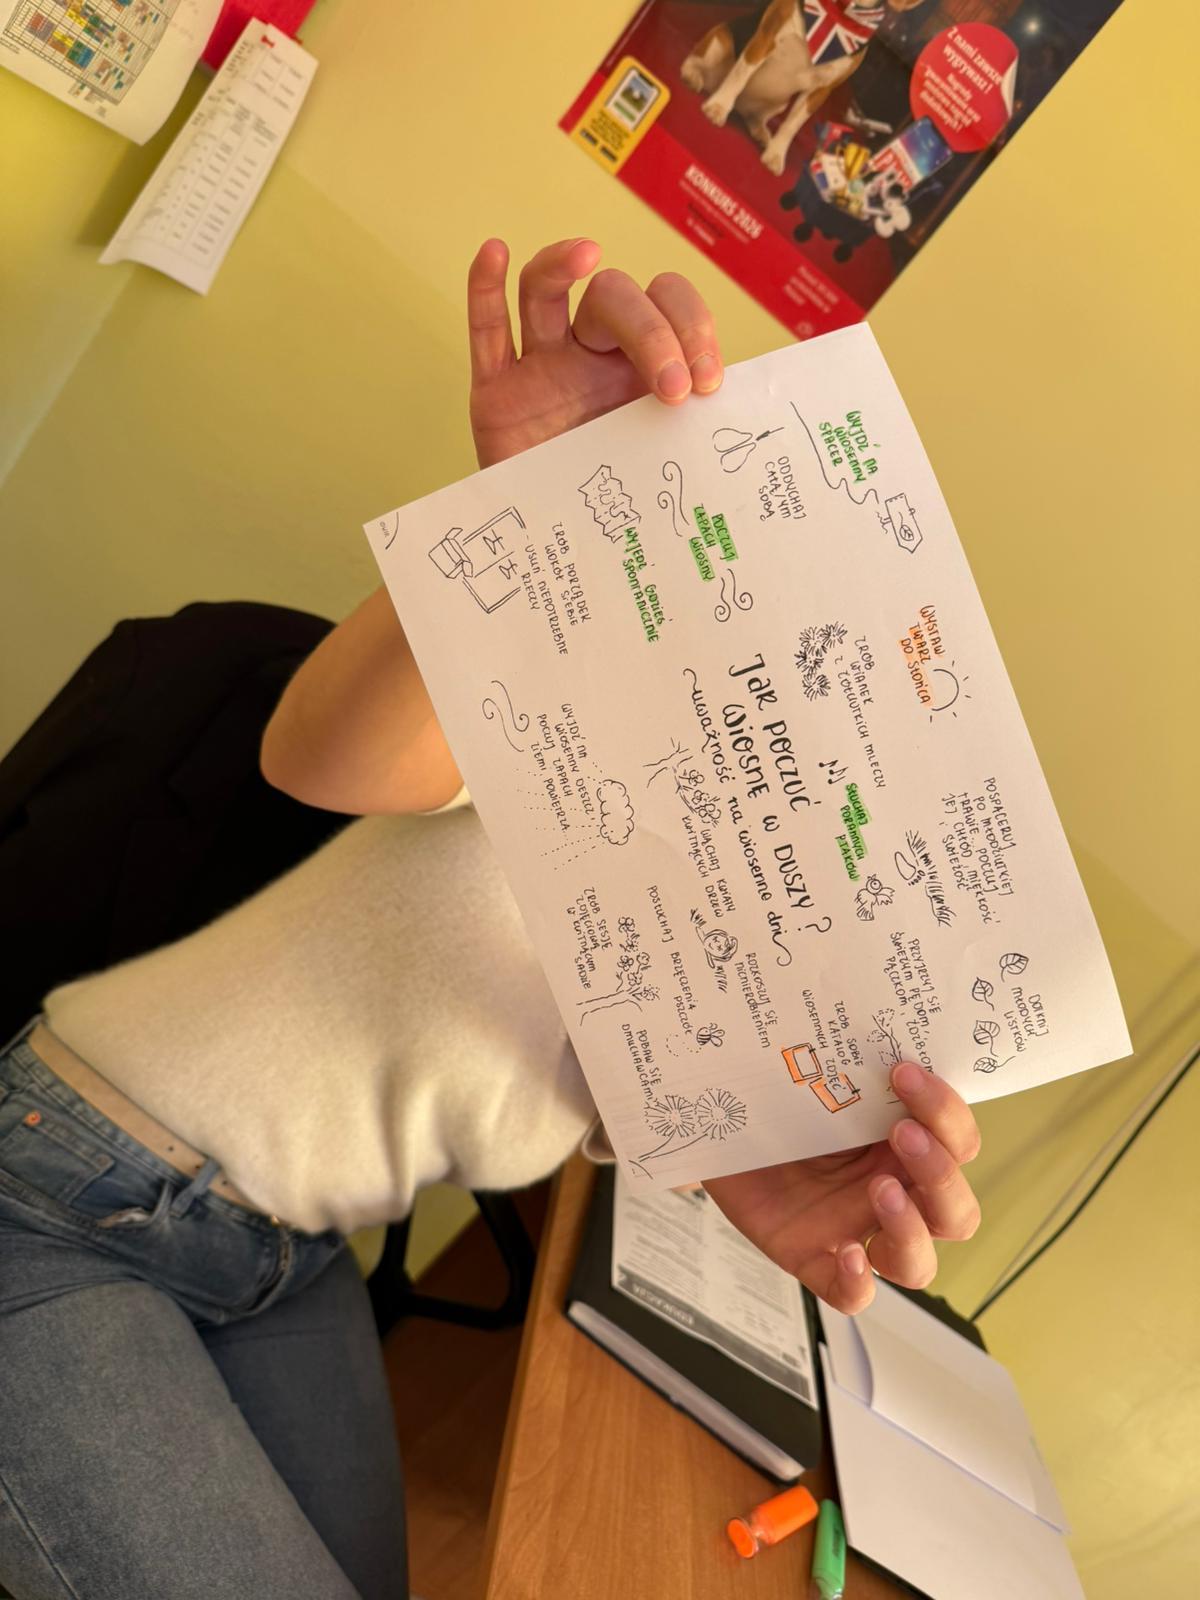 WYJDŹ NA
WIOSENNY
SPACER
WYSTAW
TWARZ
DO SŁOŃCA
POSPACERUJ
PO MŁODZIUTKIEJ
TRAWIE... POCZUJ
JEJ CHŁÓD, MIĘKKOŚĆ
I ŚWIEŻOŚĆ
DOTKNIJ
MŁODYCH
LISTKÓW
ODDYCHAJ
CAŁĄ/YM
SOBĄ
ZRÓB
WIANEK
Z ŻÓŁCIUTKICH MLECZY
SŁUCHAJ
PORANNYCH
PTAKÓW
PRZYJRZYJ SIĘ
ŚWIEŻYM PĘDOM, ŹDŹBŁOM
PĄCZKOM,
POCZUJ
ZAPACH
WIOSNY
Jak POCZUĆ
WIOSNĘ W DUSZY?
~uważność na wiosenne dni~
ZRÓB SOBIE
KATALOG
WIOSENNYCH ZDJĘĆ
WYJEDŹ GDZIEŚ
SPONTANICZNIE
WĄCHAJ KWIATY
KWITNĄCYCH DRZEW
ROZKOSZUJ SIĘ
NICNIEROBIENIEM
ZRÓB PORZĄDEK
WOKÓŁ SIEBIE
- USUŃ NIEPOTRZEBNE
RZECZY
WYJDŹ NA
WIOSENNY DESZCZ,
POCZUJ ZAPACH
ZIEMI, POWIETRZA...
POSŁUCHAJ BRZĘCZENIA
PSZCZÓŁ
ZRÓB SESJĘ
ZDJĘCIOWĄ
W KWITNĄCYM
SADZIE
POBAW SIĘ
DMUCHAWCAMI
Z nami zawsze
wygrywasz!
Nagrody
gwarantowane oraz
mnóstwo nagród
dodatkowych!
KONKURS 2026
EDUKACJA